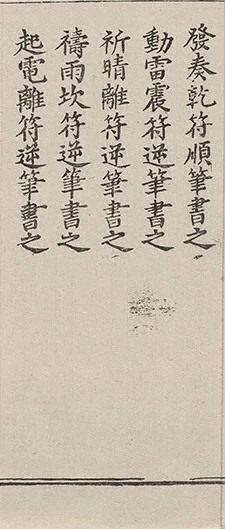 發奏乾符順筆書之
動雷震符逆筆書之
祈晴離符逆筆書之
禱雨坎符逆筆書之
起電離符逆筆書之